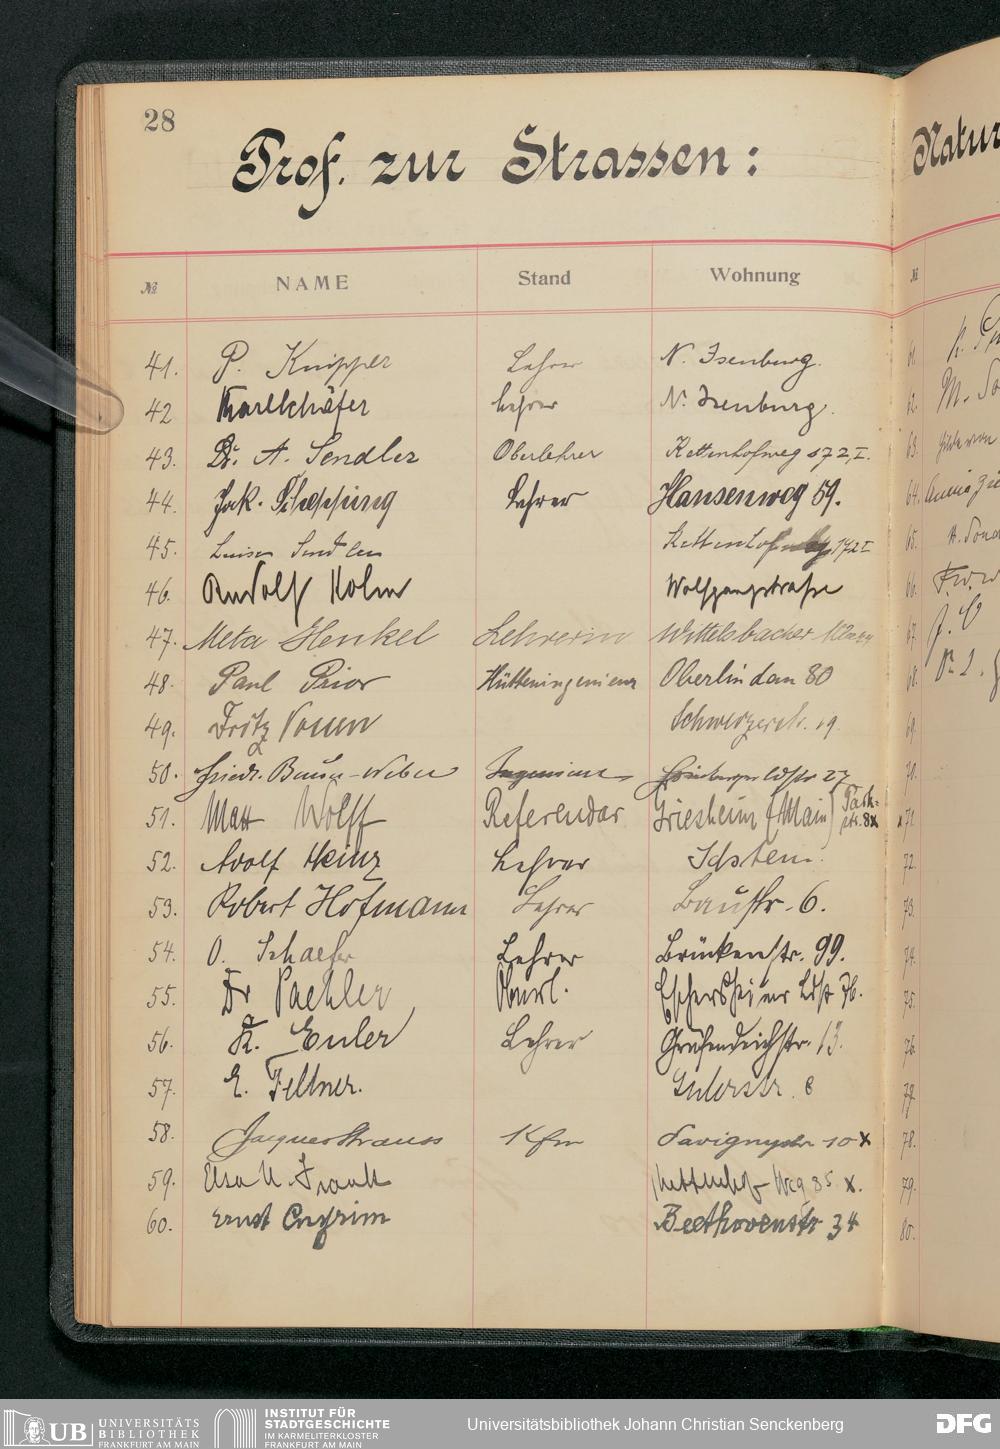 28
Prof. zur Strassen:
Natur
№ NAME Stand Wohnung
№
41. P. Knipper Lehrer N. Isenburg.
42 Karl Schäfer Lehrer N. Isenburg.
43. Dr. A. Sendler Oberlehrer Kettenhofweg 172, I.
44. Jak. Lehrer Hansenweg 59.
45. Luise Sendler Kettenhofweg 172 I
46. Rudolf Wolfgangstraße
47. Meta Henkel Lehrerin Wittelsbacher
48. Paul Prior Hütteningenieur Oberlindau 80
49. Fritz Schweizerstr. 19
50. Friedr. Ingenieur 27
51. Max Wolff Referendar Griesheim (Main) Park-
str. 8 x
52. Adolf Heinz Lehrer Idstein.
53. Robert Hofmann Lehrer 6.
54. O. Schaefer Lehrer Brückenstr. 99.
55. Dr Paehler Oberl. Eschersheimer Ldstr 76.
56. K. Euler Lehrer 13.
57. E. Fellner. 8
58. Jacques Strauss Kfm Savignystr 10 x
59. Elsa Weg 85 x.
60. Ernst Beethovenstr 34
61.
62. M.
63.
64.
65.
66.
67.
68.
69.
70.
x 71.
72.
73.
74.
75.
76.
77.
78.
79.
80.
UB UNIVERSITÄTS
BIBLIOTHEK
FRANKFURT AM MAIN
INSTITUT FÜR
STADTGESCHICHTE
IM KARMELITERKLOSTER
FRANKFURT AM MAIN
Universitätsbibliothek Johann Christian Senckenberg
DFG